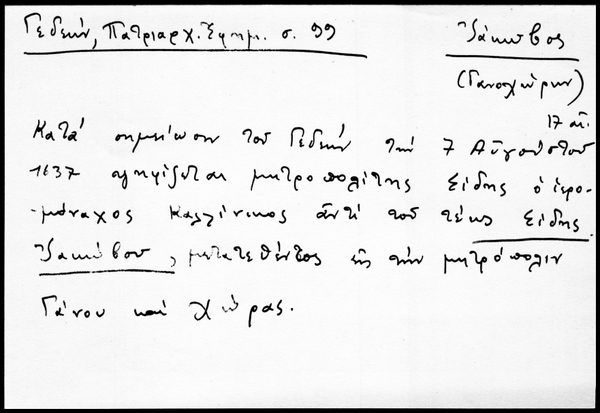 Γεδεών, Πατριαρχ. Ἐφημ. σ. 99
Ἰάκωβος
(Γανοχώρων)
17 αἰ.
Κατά σημείωσιν τοῦ Γεδεών τήν 7 Αὐγούστου
1637 ψηφίζεται μητροπολίτης Σίδης ὁ ἱερο-
-μόναχος Καλλίνικος ἀντί τοῦ τέως Σίδης
Ἰακώβου, μετατεθέντος εἰς τήν μητρόπολιν
Γάνου καί Χώρας.